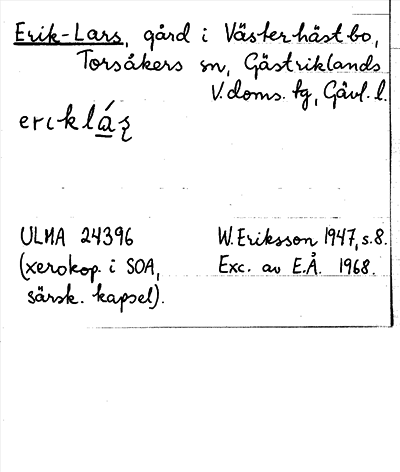 Erik-Lars, gård i Västerhästbo,
Torsåkers sn, Gästriklands
V. doms. tg, Gävl. l.
ULMA 24396
(xerokop. i SOA,
särsk. kapsel).
W. Eriksson 1947, s. 8.
Exc. av E.Å. 1968.